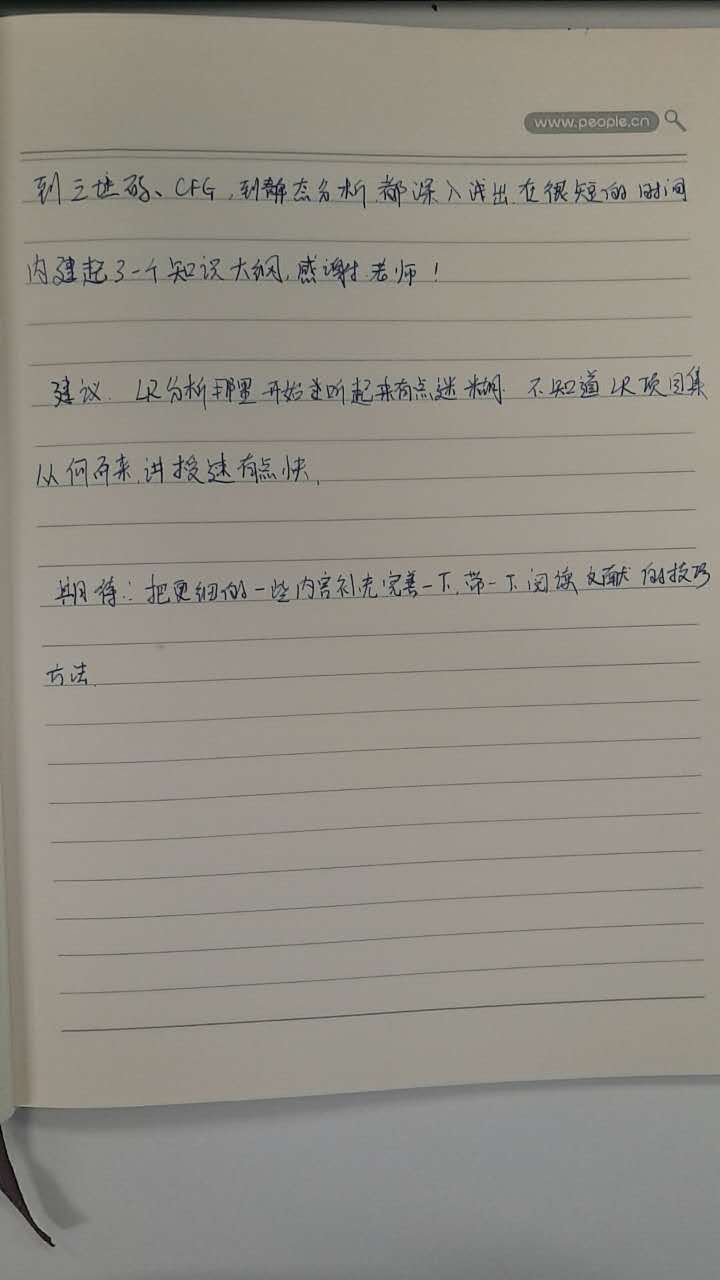 www.people.cn
到三地码、CFG,到静态分析,都深入浅出.在很短的时间
内建起了一个知识大纲,感谢老师!
建议. LR分析那里开始听起来有点迷糊. 不知道LR项目集
从何而来,讲授速有点快,
期待:: 把更细的一些内容补充完善一下,带一下阅读文献的技巧
方法.